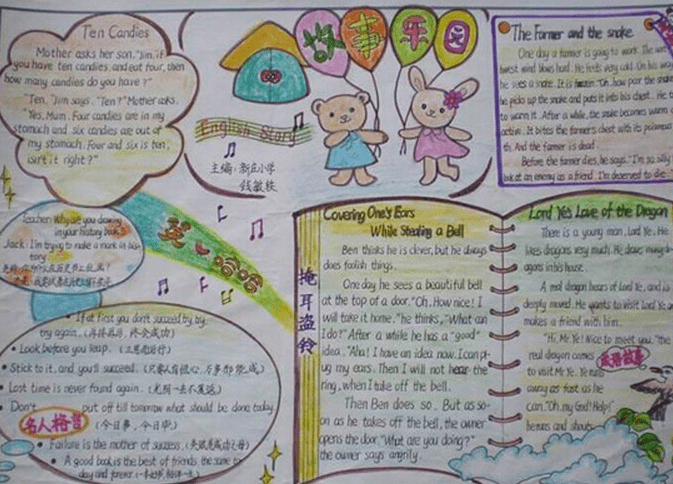 Ten Candies
Mother asks her son, "Jim, if
you have ten candies, and eat four, then
how many candies do you have?"
"Ten," Jim says. "Ten?" Mother asks.
"Yes, Mum. Four candies are in my
stomach and six candies are out of
my stomach. Four and six is ten,
isn't it right?"
故事乐园
English Story
主编:新庄小学
钱敏轶
The Farmer and the snake
One day a farmer is going to work. The
west wind blows hard. He feels very cold. On his way
he sees a snake. It is frozen. "Oh, how poor the snake
he picks up the snake and puts it into his chest. He t
to warm it. After a while, the snake becomes warm
active. It bites the farmer's chest with its poisonous
th. And the farmer is dead.
Before the farmer dies, he says, "I'm so silly
look at an enemy as a friend. I'm deserved to die
Teacher: Why are you drawing
in your history book
Jack: I'm trying to make a mark in his
tory.
英
哈哈
If at first you don't succeed, try, try
try again. (再接再厉,终会成功)
Look before you leap. (三思而后行)
Stick to it, and you'll succeed. (只要人有恒心,万事都能成)
Lost time is never found again. (光阴一去不复返)
Don't put off till tomorrow what should be done today.
名人格言
(今日事,今日毕)
Failure is the mother of success. (失败是成功之母)
A good book is the best of friends, the same to
day and forever.
掩耳盗铃
Covering One's Ears
While Stealing a Bell
Ben thinks he is clever, but he always
does foolish things.
One day he sees a beautiful bell
at the top of a door. "Oh, How nice! I
will take it home," he thinks, "What can
I do?" After a while he has a "good"
idea. "Aha! I have an idea now. I can pl-
ug my ears. Then I will not hear the
ring, when I take off the bell.
Then Ben does so. But as so-
on as he takes off the bell, the owner
opens the door, "What are you doing?"
the owner says angrily.
Lord Ye's Love of the Dragon
There is a young man, Lord Ye. He
likes dragons very much. He draws many dr-
agons in his house.
A real dragon hears of Lord Ye, and is
deeply moved. He wants to visit Lord Ye an
makes a friend with him.
"Hi, Mr Ye! Nice to meet you," the
real dragon comes
成语故事
to visit Mr Ye. Ye runs
away as fast as he
can. "Oh, my God! Help!"
he runs and shouts.